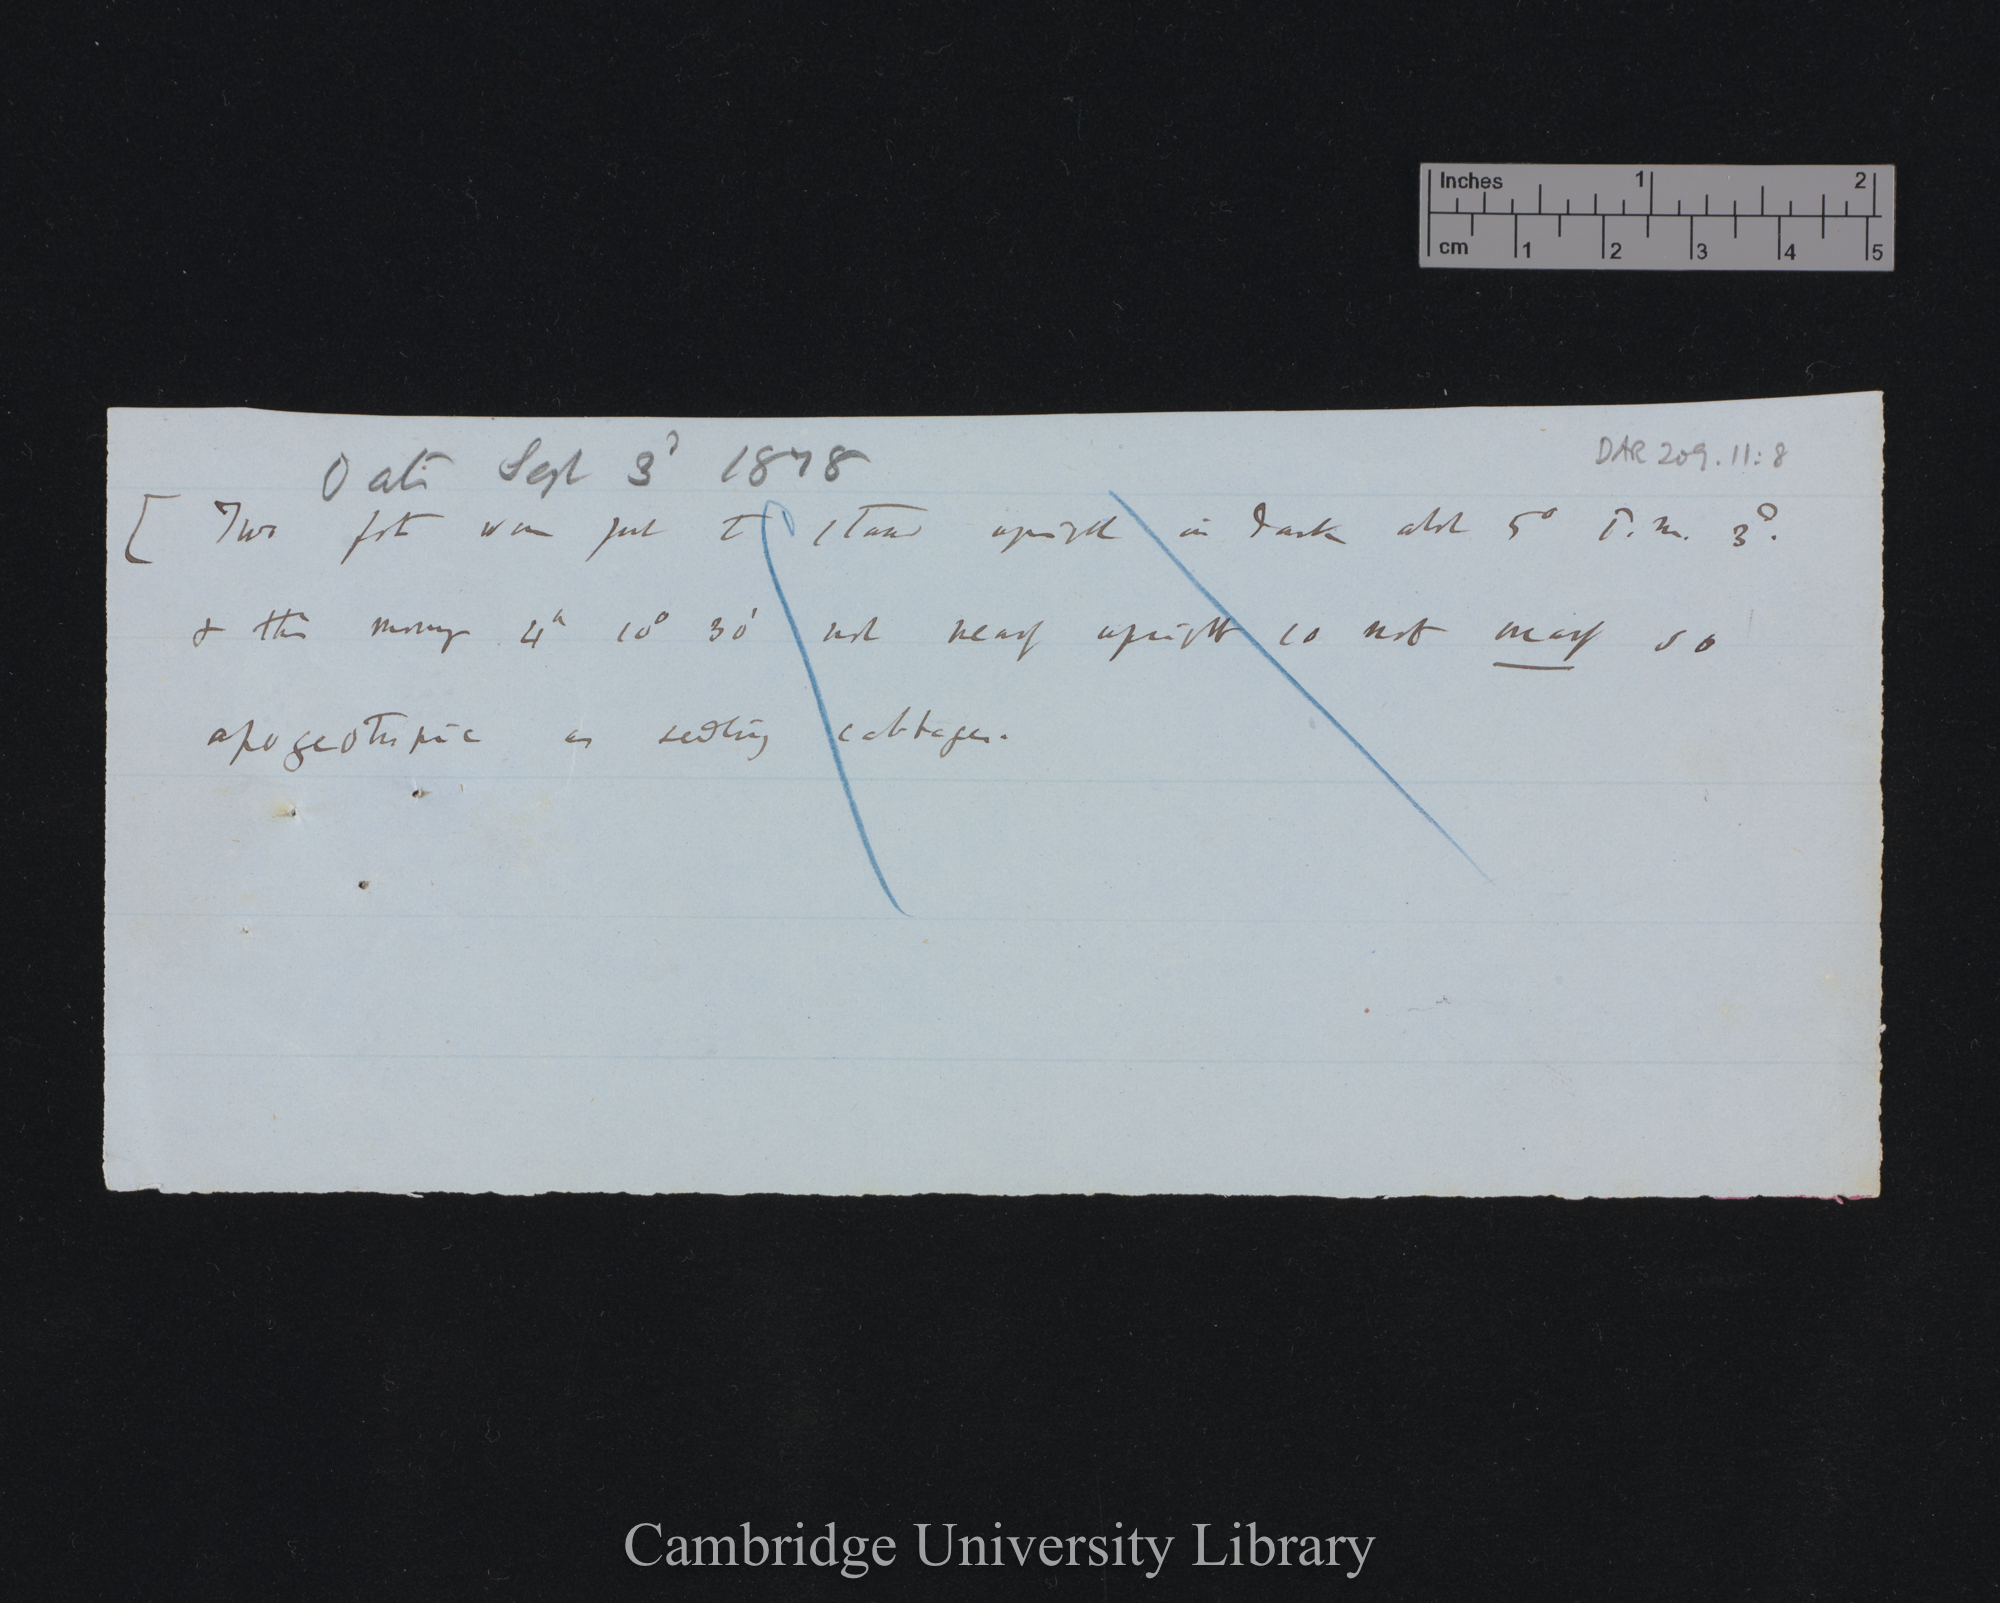 Inches 1 2
cm 1 2 3 4 5
DAR 209.11:8
Oats Sept 3d 1878
[ Two pots were put to stand upright in dark abt 5° P.m. 3d.
& this morng 4th 10° 30' not nearly upright so not nearly so
apogeotropic as seedling cabbages.
Cambridge University Library